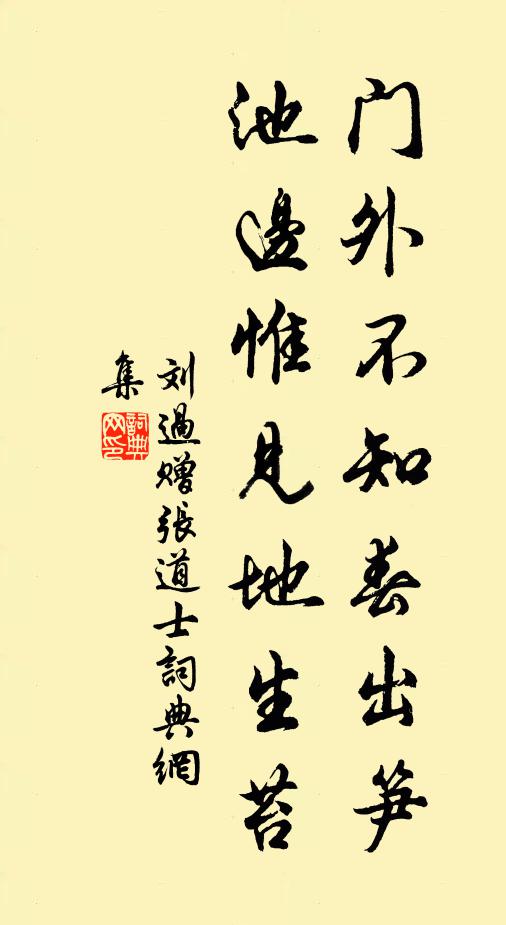 门外不知春出笋
池邊惟见地生苔
刘過赠張道士詞典網
集
詞典网印